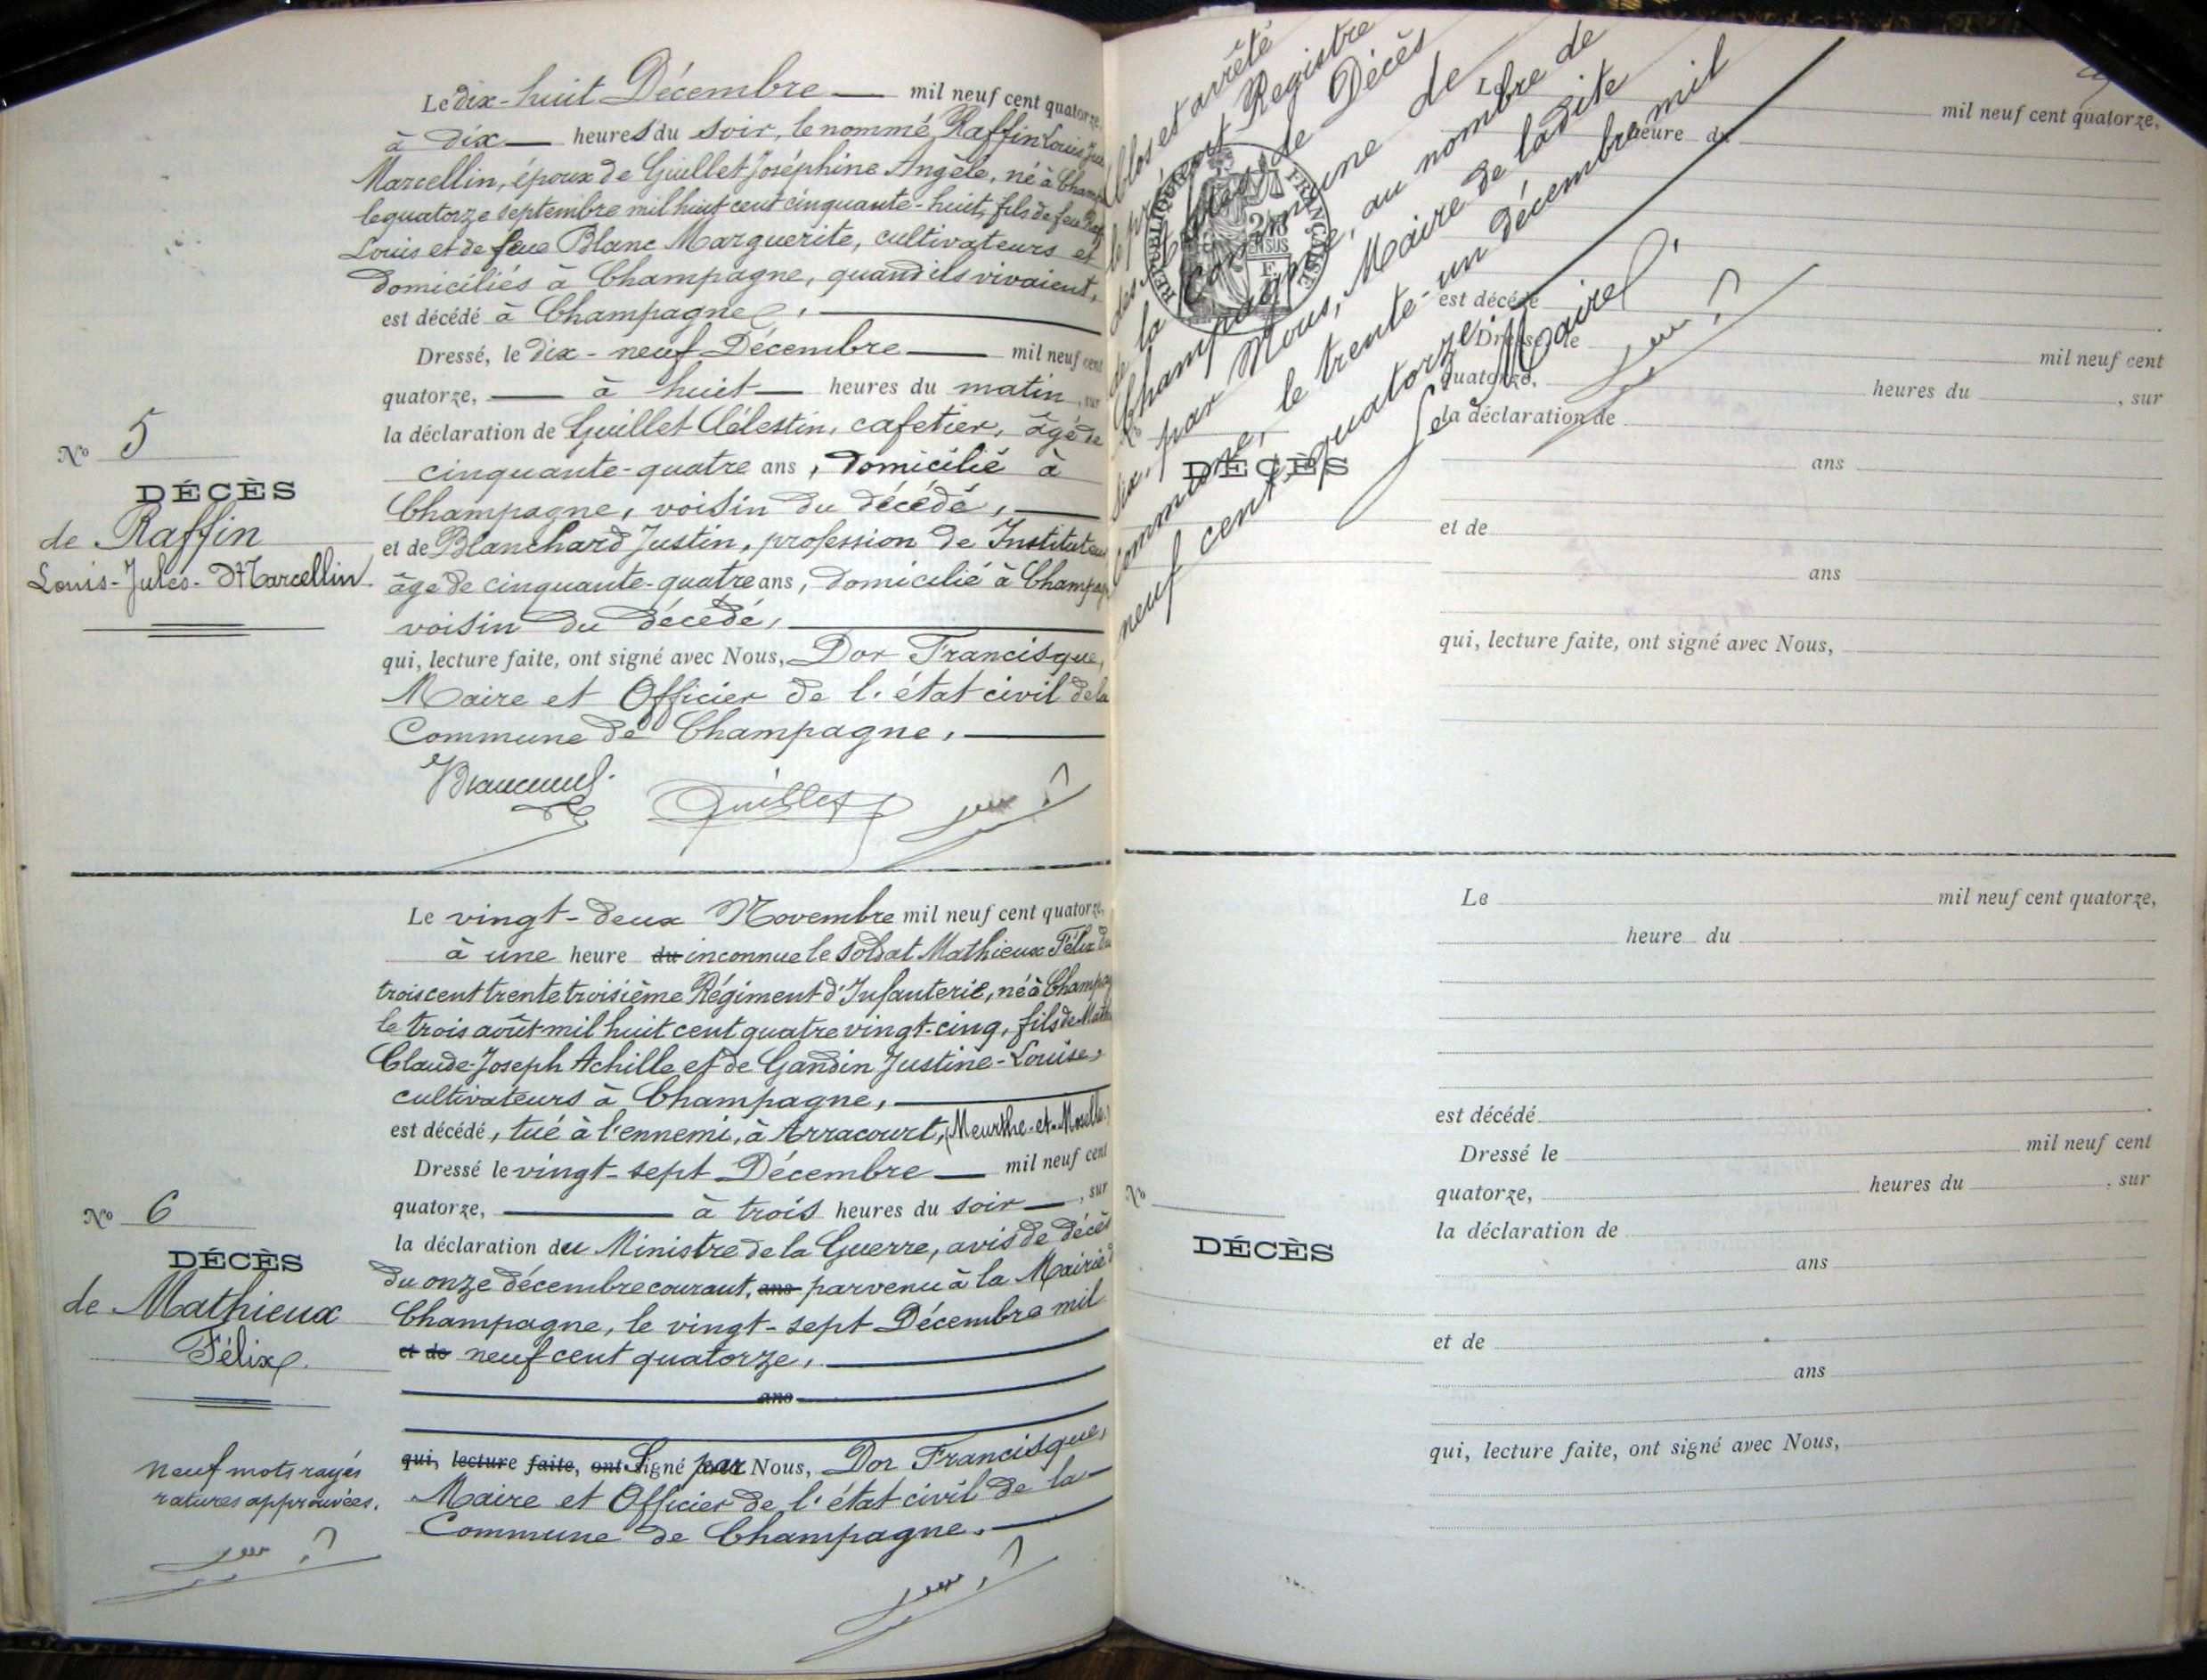 Le dix-huit Décembre — mil neuf cent quatorze,
à dix — heures du soir, le nommé, Raffin Louis Jules
Marcellin, époux de Guillet Joséphine Angèle, né à Champ
le quatorze septembre mil huit cent cinquante-huit, fils de feu Raf
Louis et de feue Blanc Marguerite, cultivateurs et
domiciliés à Champagne, quand ils vivaient,
est décédé à Champagne, —
Dressé, le dix-neuf Décembre — mil neuf cent
quatorze, — à huit — heures du matin, sur
la déclaration de Guillet Célestin, cafetier, âgé de
cinquante-quatre ans, domicilié à
Champagne, voisin du décédé, —
et de Blanchard Justin, profession de Instituteur
âge de cinquante-quatre ans, domicilié à Champag
voisin du décédé, —
qui, lecture faite, ont signé avec Nous, Dor Francisque,
Maire et Officier de l'état civil de la
Commune de Champagne, —
Guillet
No 5
DÉCÈS
de Raffin
Louis-Jules-Marcellin
Le vingt-deux Novembre mil neuf cent quatorze,
à une heure du inconnue le soldat Mathieux Félix du
trois cent trente troisième Régiment d'Infanterie, né à Champag
le trois août mil huit cent quatre vingt-cinq, fils de Math
Claude-Joseph Achille et de Gandin Justine-Louise,
cultivateurs à Champagne, —
est décédé, tué à l'ennemi, à Arracourt, (Meurthe-et-Moselle)
Dressé le vingt-sept Décembre — mil neuf cent
quatorze, — à trois heures du soir —, sur
la déclaration du Ministre de la Guerre, avis de décès
du onze décembre courant, ans parvenu à la Mairie d
Champagne, le vingt-sept Décembre mil
et de neuf cent quatorze, —
ans
qui, lecture faite, ont Signé par Nous, Dor Francisque,
Maire et Officier de l'état civil de la —
Commune de Champagne. —
No 6
DÉCÈS
de Mathieux
Félix
Neuf mots rayés
ratures approuvées.
Clos et arrêté
le présent Registre
des Actes de Décès
de la Commune de
Champagne, au nombre de
six, par Nous, Maire de ladite
Commune, le trente-un décembre mil
neuf cent quatorze.
Le Maire,
RÉPUBLIQUE FRANÇAISE
Le mil neuf cent quatorze,
heure du
est décédé
Dressé le mil neuf cent
quatorze, heures du , sur
la déclaration de
ans
et de
ans
qui, lecture faite, ont signé avec Nous,
No
DÉCÈS
Le mil neuf cent quatorze,
heure du
est décédé
Dressé le mil neuf cent
quatorze, heures du , sur
la déclaration de
ans
et de
ans
qui, lecture faite, ont signé avec Nous,
No
DÉCÈS